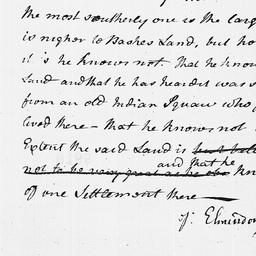 the most southerly one is the larg
is nigher to Bashes Land, but ho
it is he knows not. That he know
Land and that he has heard it was s
from an old Indian Squaw who
lived there - that he knows not
Extent the said Land is
and that he
not to be very great as he kn
of one Settlement there